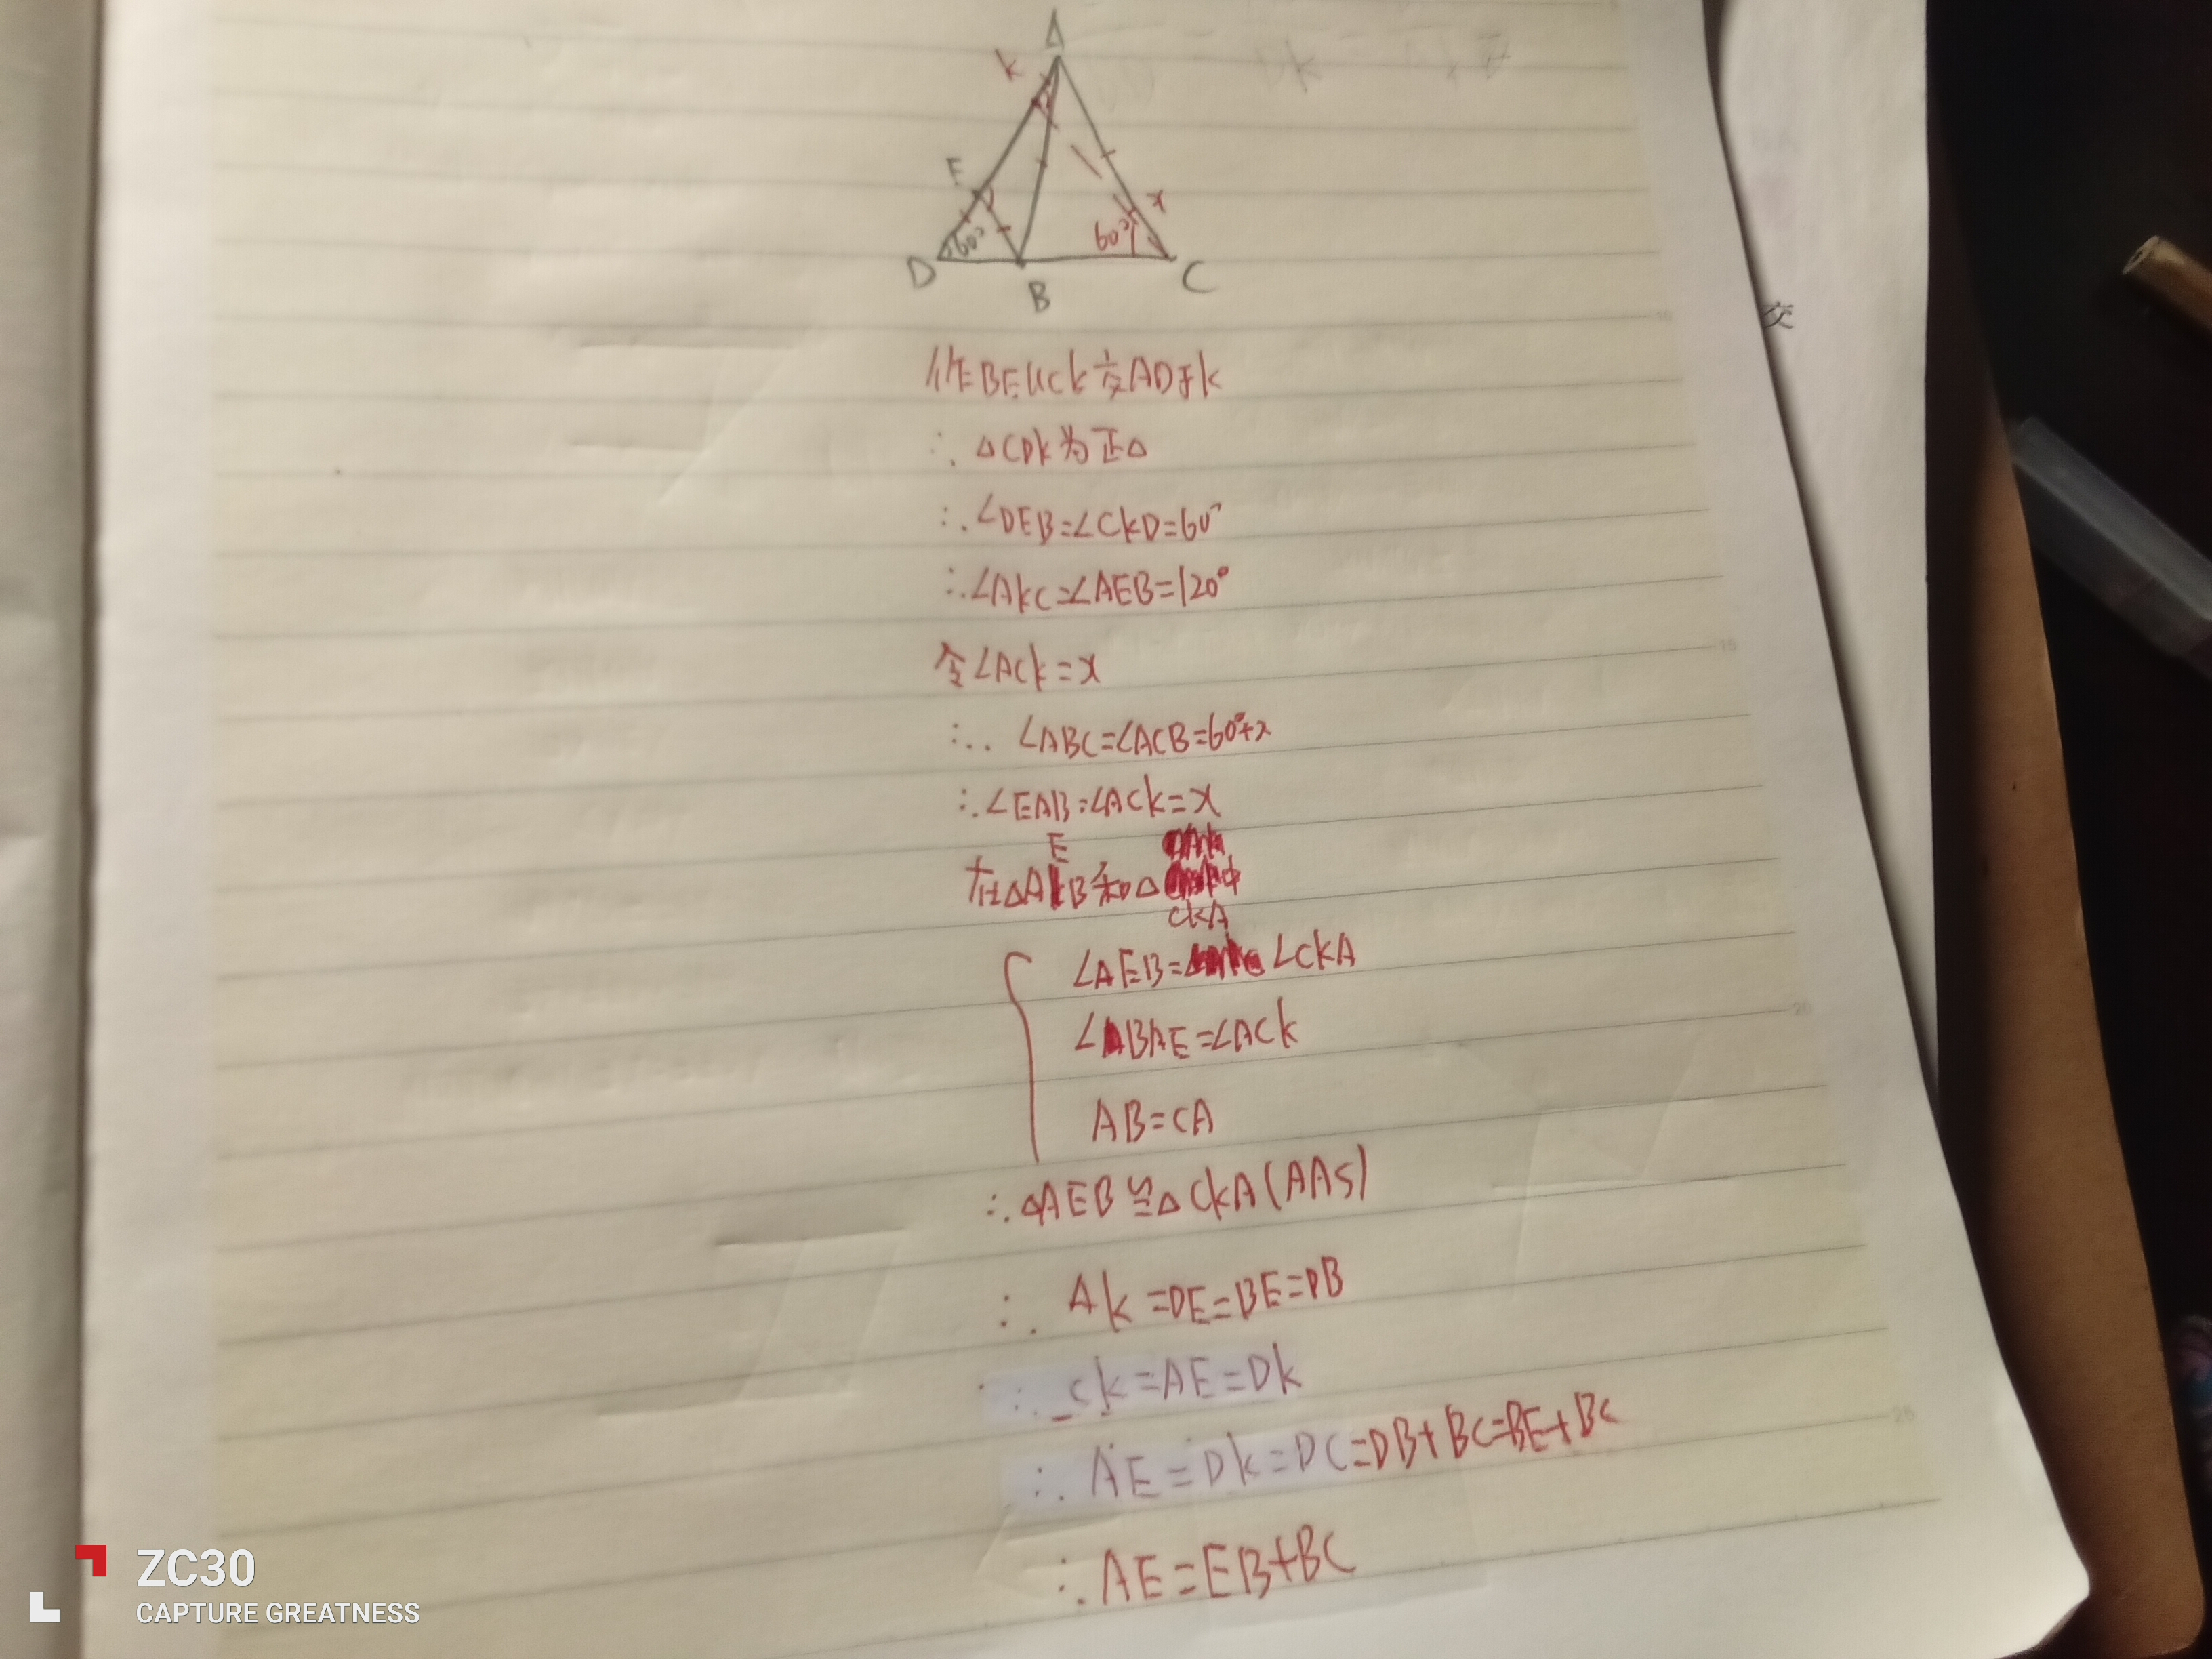 A
k
E
60°
60°
x
D
B
C
交
作BE∥Ck交AD于k
∴△CDk为正△
∴∠DEB=∠CkD=60°
∴∠AkC=∠AEB=120°
令∠ACk=x
∴∠ABC=∠ACB=60°+x
∴∠EAB=∠ACk=x
在△AEB和△CkA中
∠AEB=∠CkA
∠BAE=∠ACk
AB=CA
∴△AEB≌△CkA(AAS)
∴Ak=DE=BE=DB
∴Ck=AE=Dk
∴AE=Dk=DC=DB+BC=BE+BC
∴AE=EB+BC
ZC30
CAPTURE GREATNESS